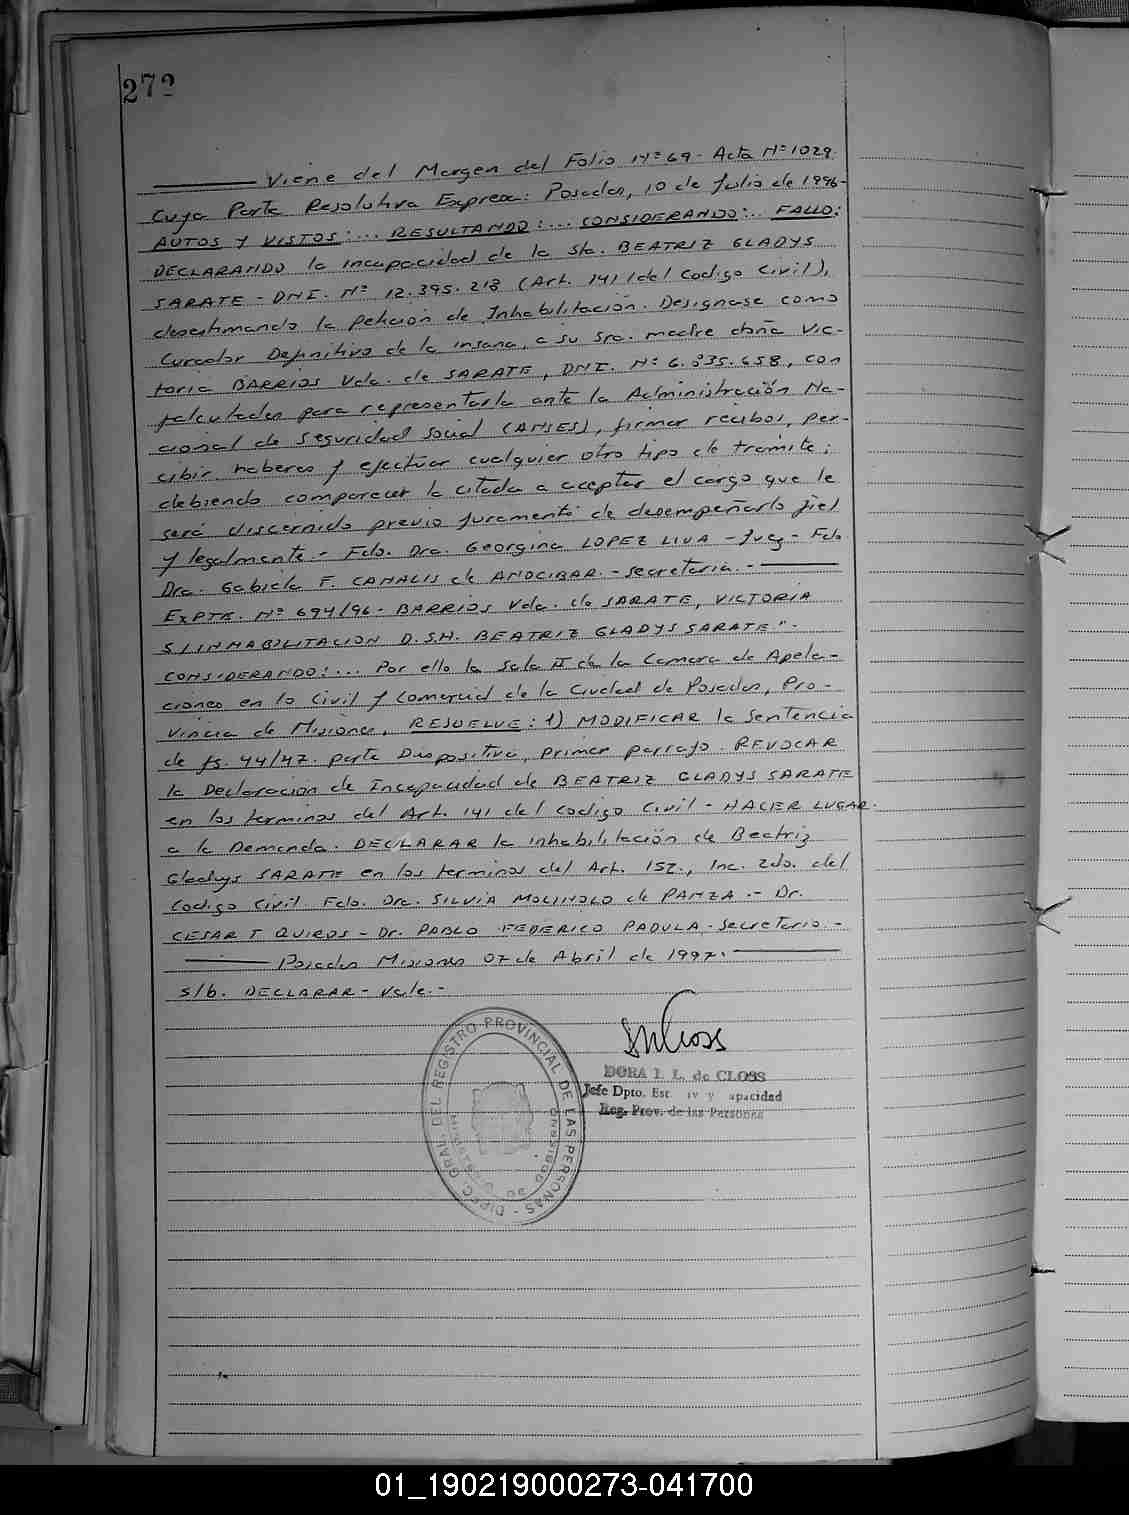 272
Viene del Margen del Folio Nº 69 - Acta Nº 1029.
Cuya Parte Resolutiva Expresa: Posadas, 10 de Julio de 1996-
AUTOS Y VISTOS:... RESULTANDO:... CONSIDERANDO:.. FALLO:
DECLARANDO la incapacidad de la Sta. BEATRIZ GLADYS
SARATE - DNI. Nº 12.395.218 (Art. 141 del Codigo Civil),
desestimando la petición de Inhabilitación. Designase como
Curador Definitivo de la insana, a su Sra. madre doña Vic-
toria BARRIOS Vda. de SARATE, DNI. Nº 6.835.658, con
facultades para representarla ante la Administración Na-
cional de Seguridad Social (ANSES), firmar recibos, per-
cibir haberes y efectuar cualquier otro tipo de tramite;
debiendo comparecer la citada a aceptar el cargo que le
será discernido previo juramento de desempeñarlo fiel
y legalmente.- Fdo. Dra. Georgina LOPEZ LIVA - Juez - Fdo
Dra. Gabiela F. CANALIS de ANOCIBAR.- Secretaria.-
EXPTE. Nº 694/96 - BARRIOS Vda. de SARATE, VICTORIA
S/INHABILITACION D.S.H. BEATRIZ GLADYS SARATE".
CONSIDERANDO:... Por ello la Sala II de la Camara de Apela-
ciones en lo Civil y Comercial de la Ciudad de Posadas, Pro-
vincia de Misiones, RESUELVE: 1) MODIFICAR la Sentencia
de fs. 44/47. parte Dispositiva, primer parrafo. REVOCAR
la Declaración de Incapacidad de BEATRIZ GLADYS SARATE
en los terminos del Art. 141 del Codigo Civil - HACER LUGAR.
a la Demanda. DECLARAR la inhabilitación de Beatriz
Gladys SARATE en los terminos del Art. 152., Inc. 2do. del
Codigo Civil. Fdo. Dra. SILVIA MOLINOLO de PANZA.- Dr.
CESAR T QUIROS - Dr. PABLO FEDERICO PADULA. Secretario.-
Posadas Misiones 07 de Abril de 1997.
S/b. DECLARAR - Vale.-
DIREC. GRAL. DEL REGISTRO PROVINCIAL DE LAS PERSONAS
DORA I. L. de CLOSS
Jefe Dpto. Est. y apacidad
Reg. Prov. de las Personas
01_190219000273-041700